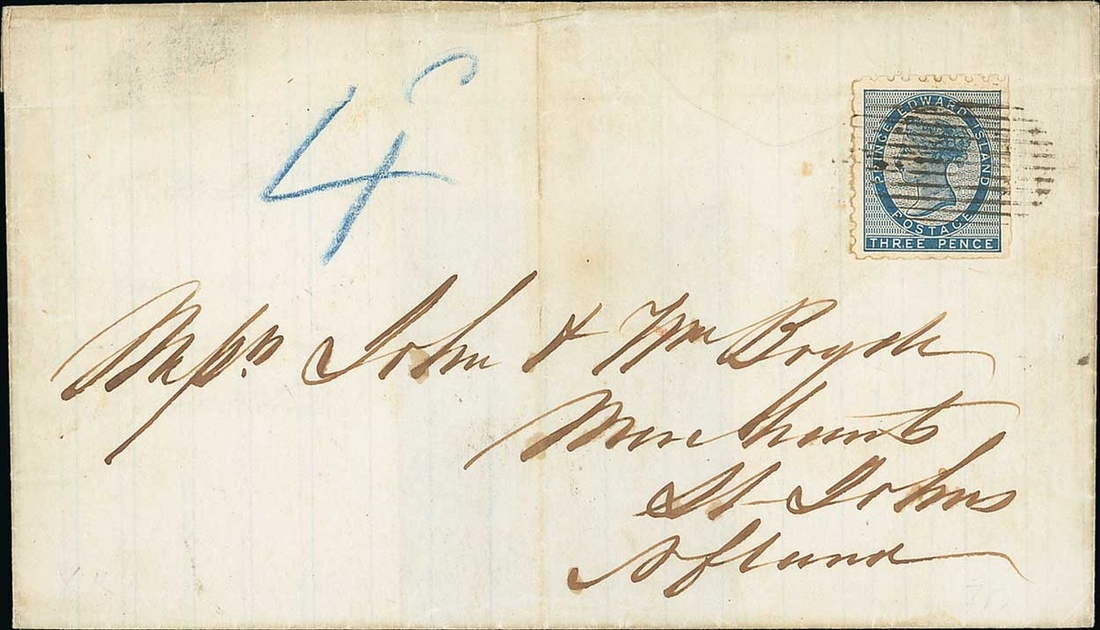 4
PRINCE EDWARD ISLAND
POSTAGE
THREE PENCE
Messrs John & Wm Boyde
Merchants
St Johns
Nfland